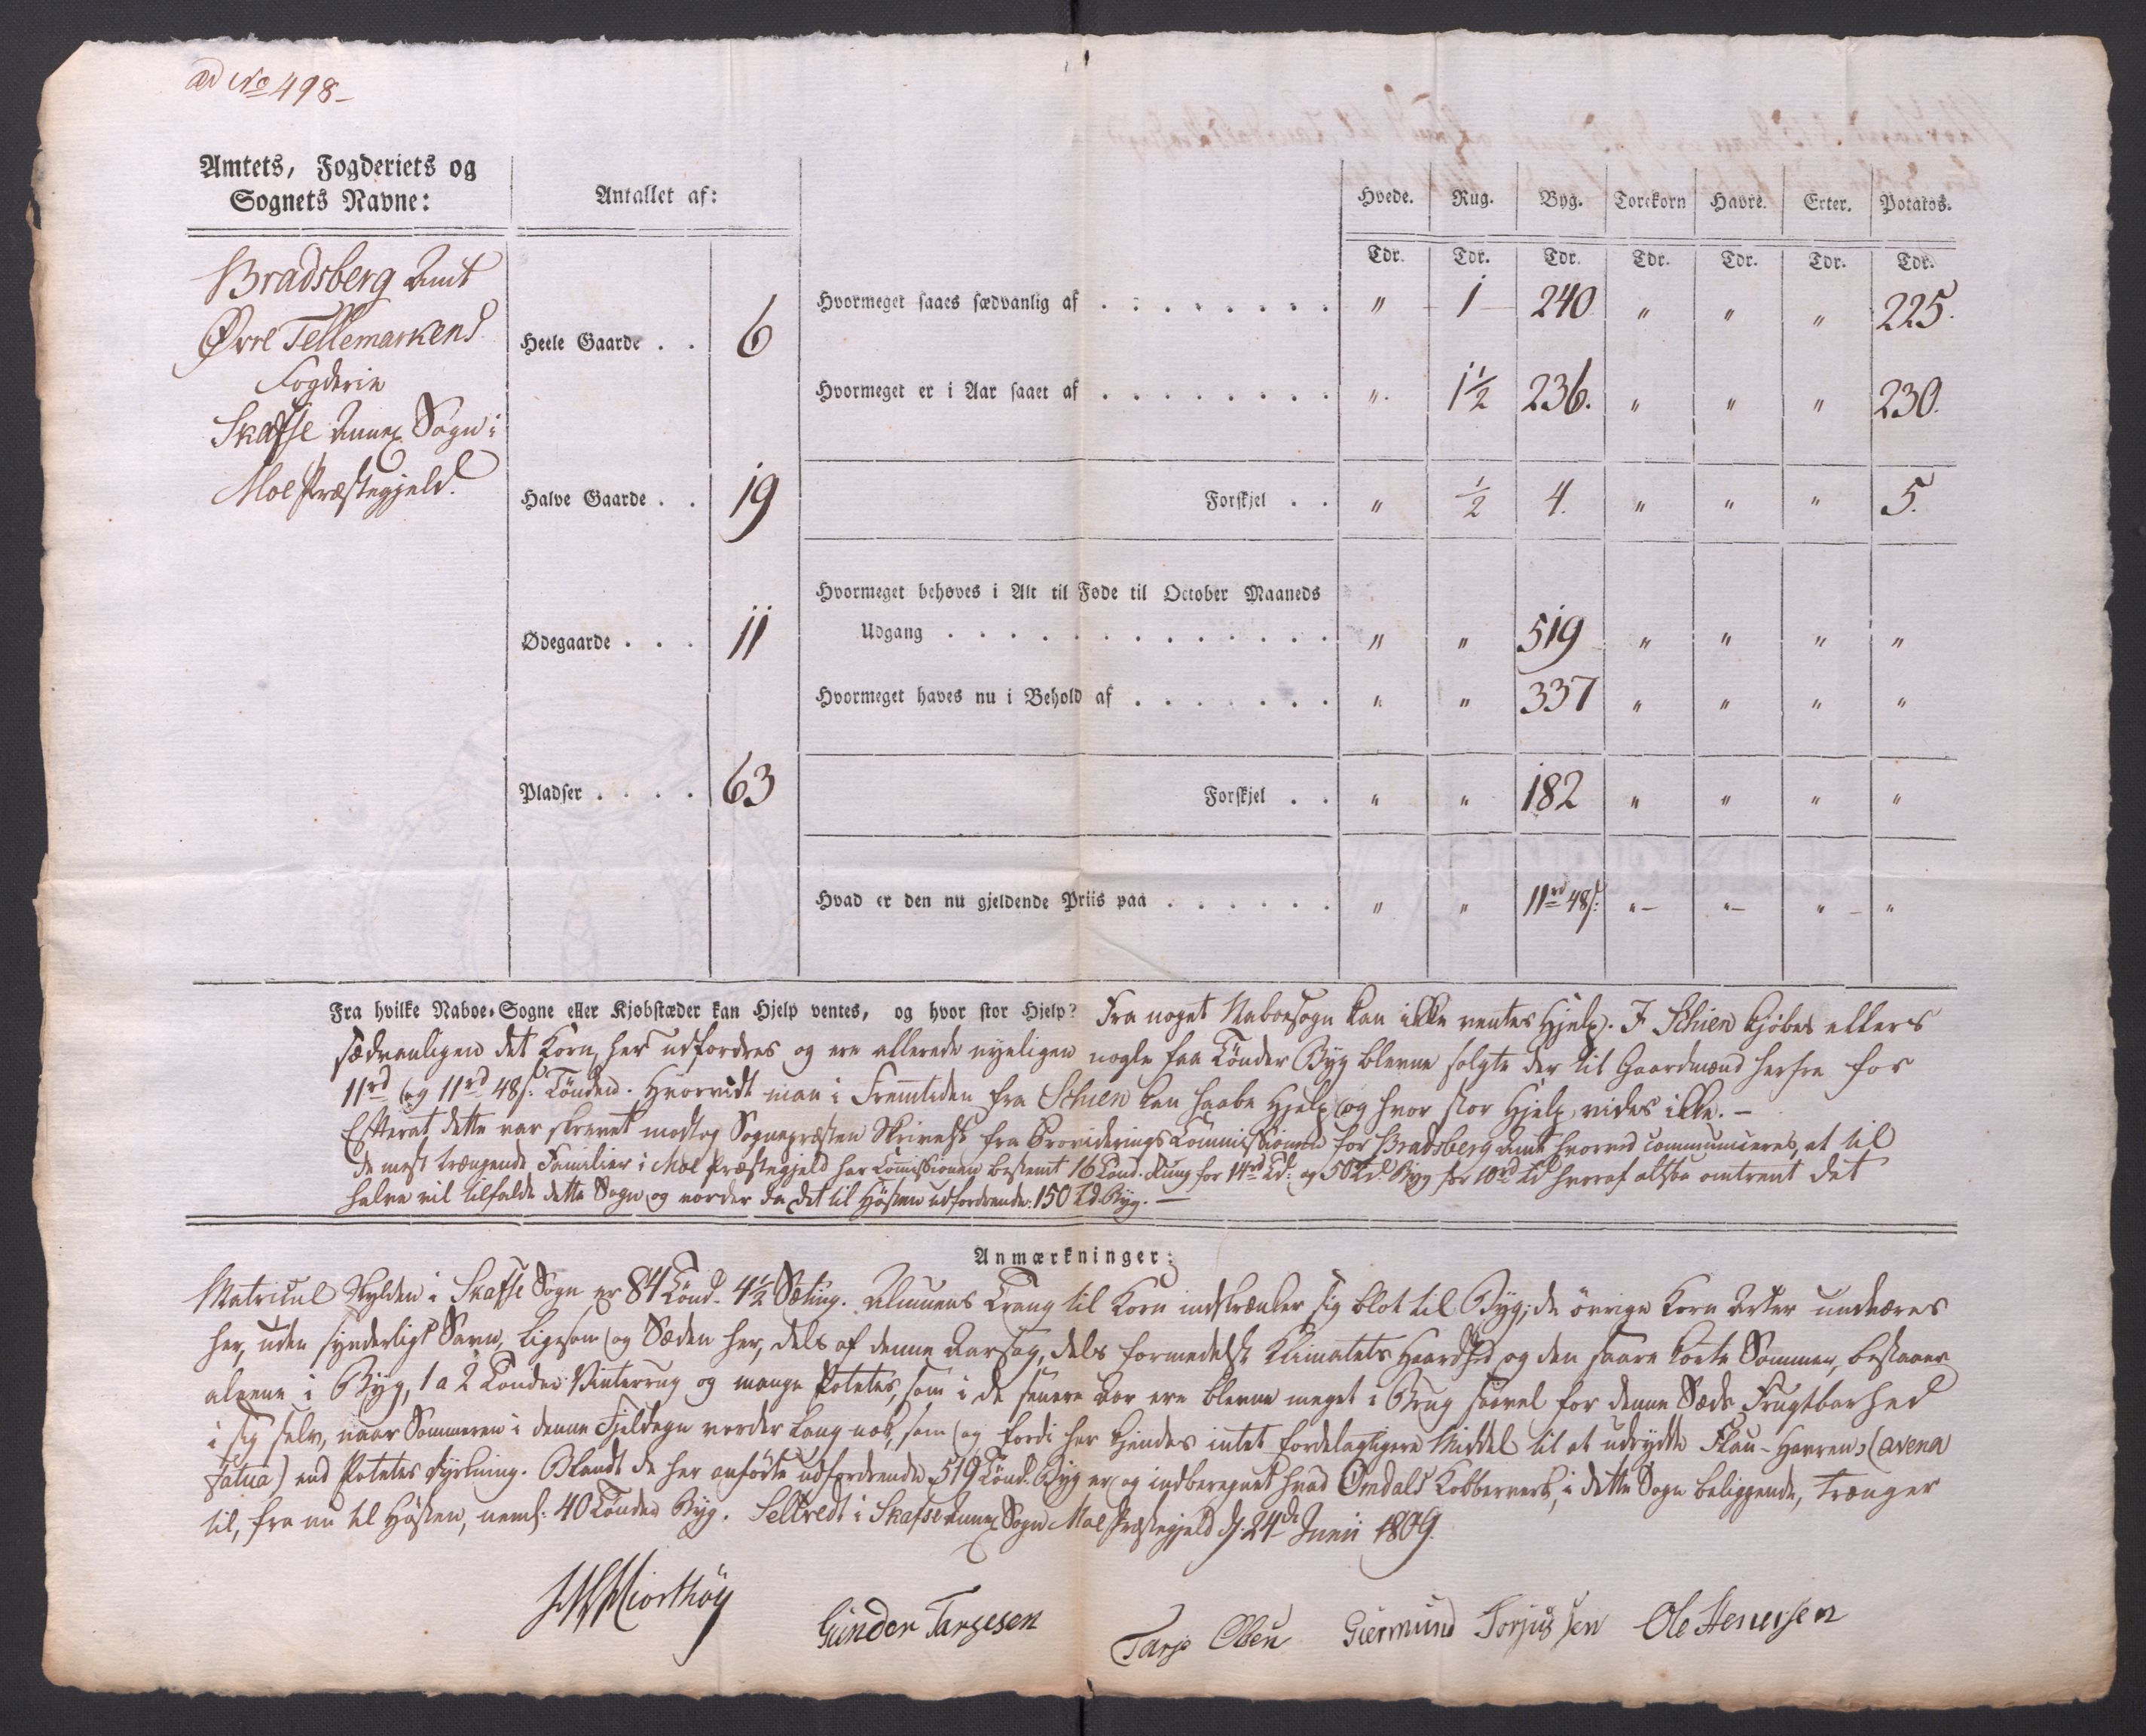 ad No 498-
Amtets, Fogderiets og
Sognets Navne:
Antallet af:
Hvede. Rug. Byg. Torekorn Havre. Erter. Potatos.
Tdr. Tdr. Tdr. Tdr. Tdr. Tdr. Tdr.
Bradsberg Amt
Øvre Tellemarkens
Fogderie
Skafse Annex Sogn i
Moe Præstegjeld.
Heele Gaarde . . 6
Halve Gaarde . . 19
Ødegaarde . . . 11
Pladser . . . . 63
Hvormeget saaes sædvanlig af . . . . . . . . " 1 240 " " " 225.
Hvormeget er i Aar saaet af . . . . . . . . " 1½ 236. " " " 230.
Forskjel . . " ½ 4. " " " 5.
Hvormeget behøves i Alt til Føde til October Maaneds
Udgang . . . . . . . . . . . . . " " 519 " " " "
Hvormeget haves nu i Behold af . . . . . . . " " 337 " " " "
Forskjel . . " " 182 " " " "
Hvad er den nu gjeldende Priis paa . . . . . . " " 11rd 48s: " " " "
Fra hvilke Naboe-Sogne eller Kjøbstæder kan Hjelp ventes, og hvor stor Hjelp? Fra noget Naboesogn kan ikke ventes Hjelp. I Schien kjøbes ellers
sædvanligen det Korn, her udfordres og ere allerede nyeligen nogle faa Tønder Byg blevne solgte der til Gaardmænd herfra for
11rd og 11rd 48s. Tønden. Hvorvidt man i Fremtiden fra Schien kan haabe Hjelp og hvor stor Hjelp, vides ikke. -
Efterat dette var skrevet modtog Sognepræsten Skrivelse fra Provideringskommissionen for Bradsberg Amt hvorved communiceres, at til
de mest trængende Familier i Moe Præstegjeld har Commissionen bestemt 16 Tønd. Rug for 14rd Td: og 50 Td. Byg for 10rd Td hvoraf altsaa omtrent det
halve vil tilfalde dette Sogn og vorder da det til Høsten udfordrende: 150 Td. Byg. -
Anmærkninger:
Matricul Skylden i Skafse Sogn er 84 Tønd. 4½ Sæting. Almuens Trang til Korn indskrænker sig blot til Byg; de øvrige Korn Arter undværes
her, uden synderligt Savn, ligesom og Sæden her, dels af denne Aarsag, dels formedelst Klimatets Haardhed og den saare korte Sommer, bestaaer
alene i Byg, 1 a 2 Tønder Vinterrug og mange Potetes, som i de senere Aar ere blevne meget i Brug saavel for denne Sæds Frugtbarhed
i sig selv, naar Sommeren i denne Fjeldegn vorder lang nok, som og fordi her kjendes intet fordelagtigere Middel til at udrydde Flau-Havren (avena
fatua) end Potetes Dyrkning. Blandt de her anførte udfordrende 519 Tønd. Byg er og indberegnet hvad Omdals Kobberverk, i dette Sogn beliggende, trænger
til, fra nu til Høsten, neml: 40 Tønder Byg. Selvedt i Skafse Annex Sogn Moe Præstegjeld d. 24de Junii 1809.
Hiorthøy
Gunder Tarjesen
Tarje Olsen Giermund Torjussen Ole